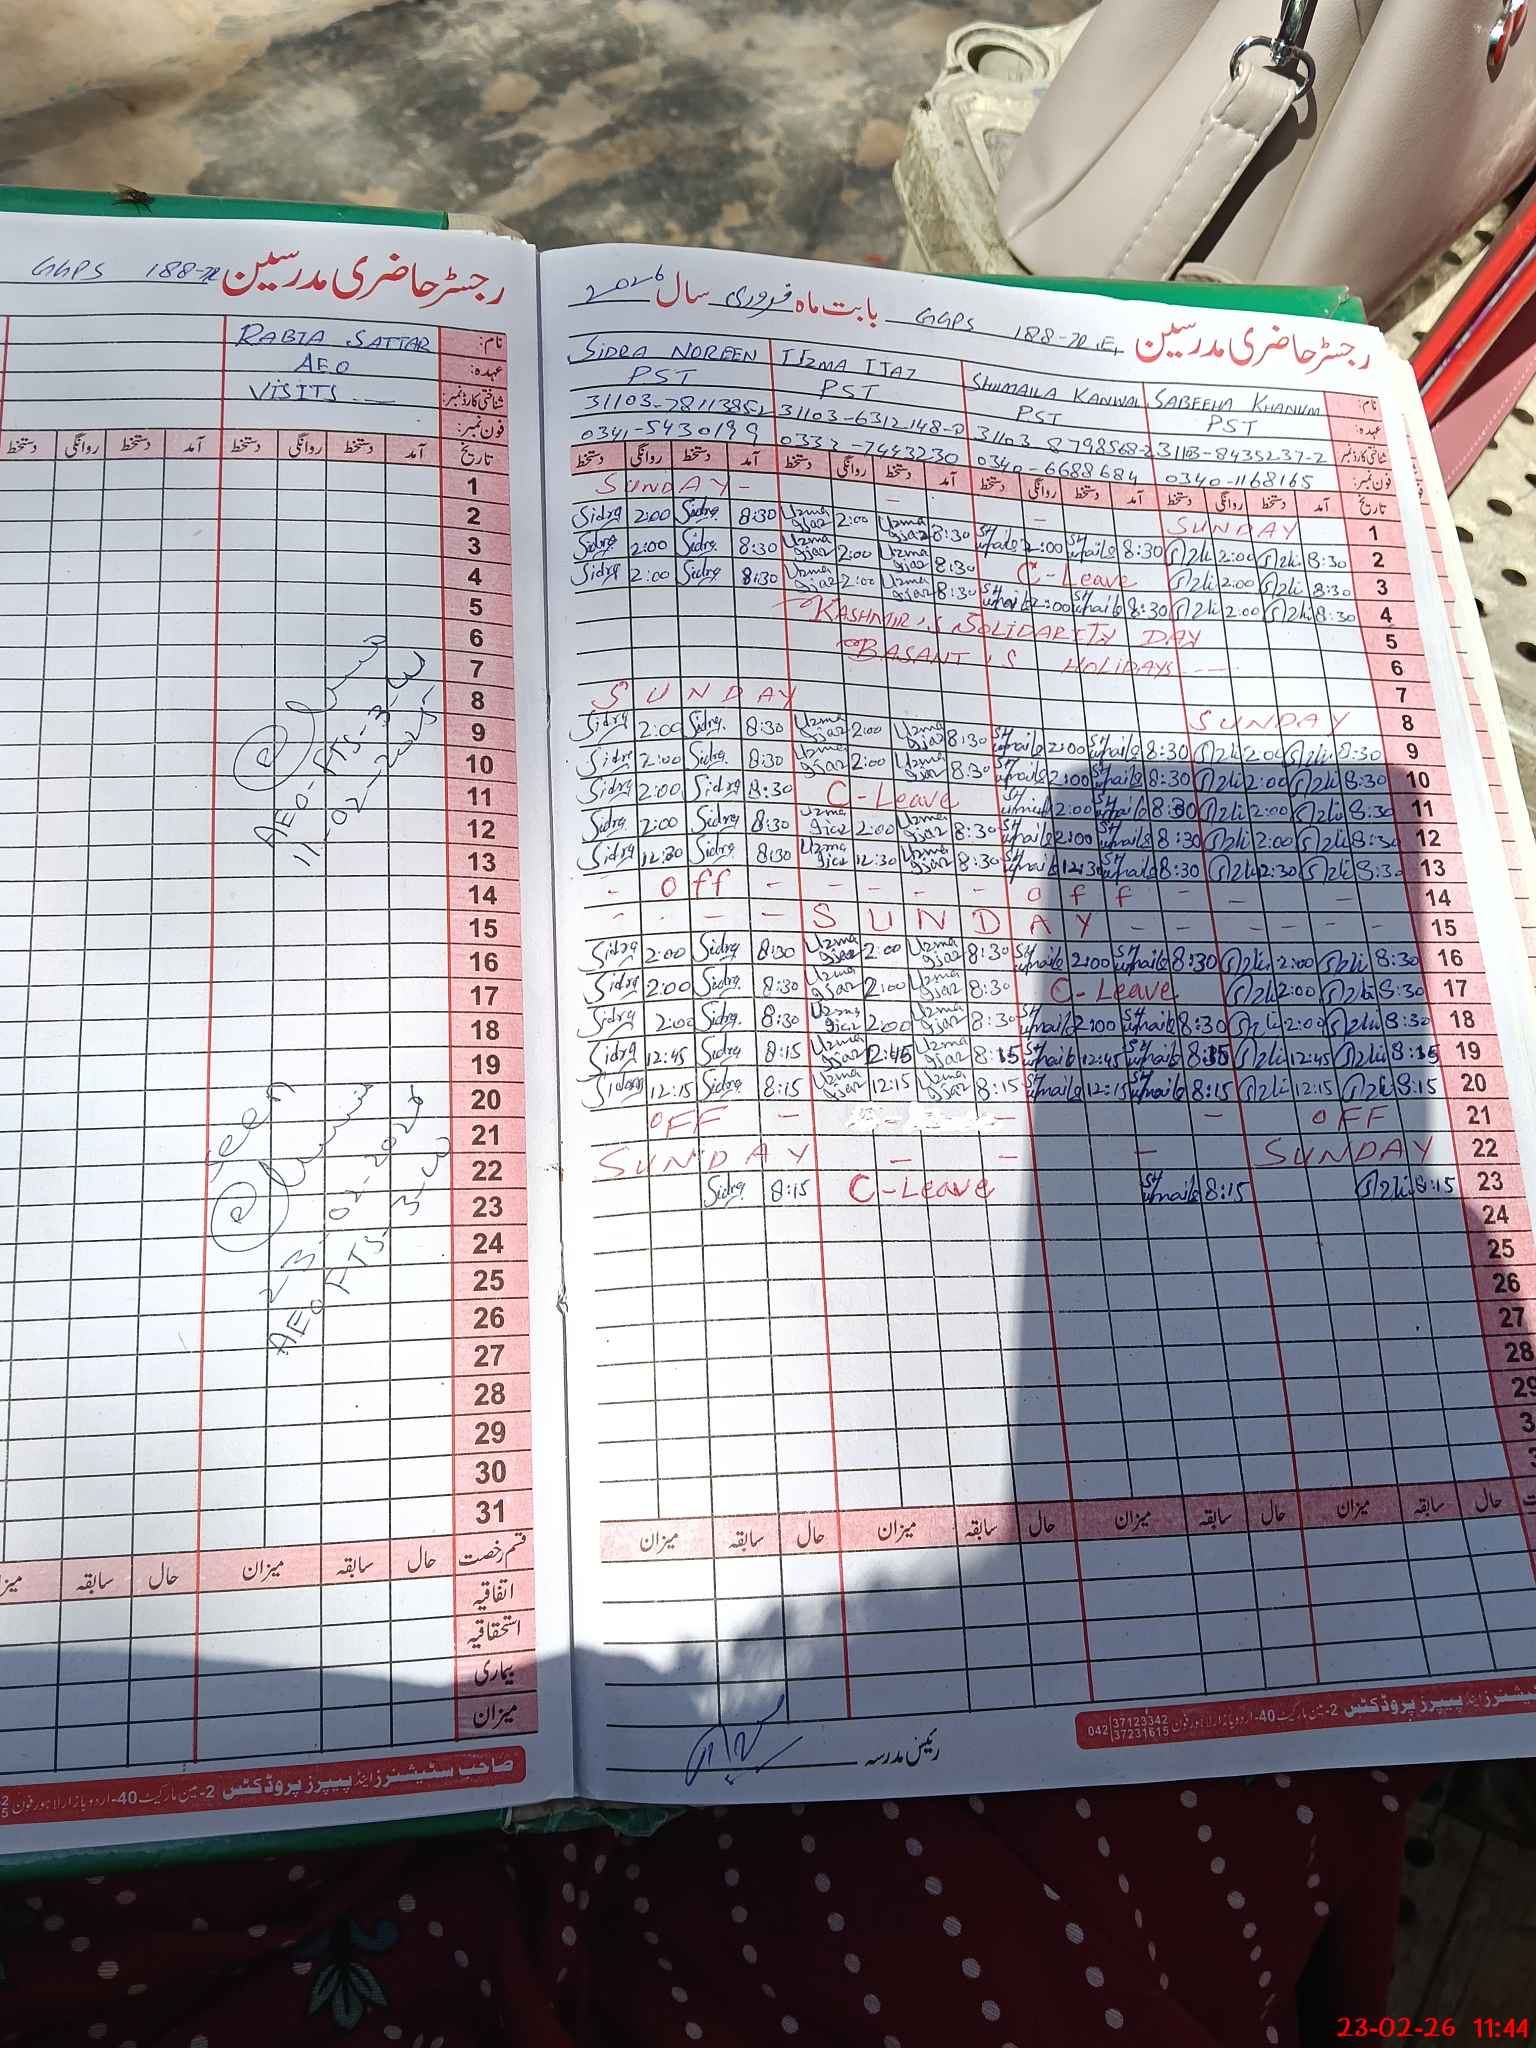 رجسٹر حاضری مدرسین GGPS 188-7R
نام: RABIA SATTAR
عہدہ: AEO
شناختی کارڈ نمبر: VISITS
فون نمبر:
تاریخ آمد دستخط روانگی دستخط آمد دستخط روانگی دستخط
1
2
3
4
5
6
7
8
9
10
11
12
13
14
15
16
17
18
19
20
21
22
23
24
25
26
27
28
29
30
31
AEO-FTS-3-W
11-02-2026
Seen
23-02-2026
AEO FTS 3-W
قسم رخصت حال سابقہ میزان حال سابقہ
اتفاقیہ
استحقاقیہ
بیماری
میزان
صاحب سٹیشنرز اینڈ پیپرز پروڈکٹس 2-مین مارکیٹ 40-اردو بازار لاہور فون
رجسٹر حاضری مدرسین GGPS 188-7R.E, بابت ماہ فروری سال 2026
نام: SABEEHA KHANUM SHUMAILA KANWAL UZMA IJAZ SIDRA NOREEN
عہدہ: PST PST PST PST
شناختی کارڈ نمبر: 31103-8435237-2 31103-8798568-2 31103-6312148-0 31103-7811385-2
فون نمبر: 0340-1168165 0340-6688684 0332-7443230 0341-5430199
تاریخ آمد دستخط روانگی دستخط آمد دستخط روانگی دستخط آمد دستخط روانگی دستخط آمد دستخط روانگی دستخط
SUNDAY - - - SUNDAY 1
Sidra 2:00 Sidra 8:30 Uzma Ijaz 2:00 Uzma Ijaz 8:30 Shumaila 2:00 Shumaila 8:30 2:00 8:30 2
Sidra 2:00 Sidra 8:30 Uzma Ijaz 2:00 Uzma Ijaz 8:30 C-Leave 2:00 8:30 3
Sidra 2:00 Sidra 8:30 Uzma Ijaz 2:00 Uzma Ijaz 8:30 Shumaila 2:00 Shumaila 8:30 2:00 8:30 4
KASHMIR'S SOLIDARITY DAY 5
BASANT'S HOLIDAYS 6
7
SUNDAY SUNDAY 8
Sidra 2:00 Sidra 8:30 Uzma Ijaz 2:00 Uzma Ijaz 8:30 Shumaila 2:00 Shumaila 8:30 2:00 8:30 9
Sidra 2:00 Sidra 8:30 Uzma Ijaz 2:00 Uzma Ijaz 8:30 Shumaila 2:00 Shumaila 8:30 2:00 8:30 10
Sidra 2:00 Sidra 8:30 C-Leave Shumaila 2:00 Shumaila 8:30 2:00 8:30 11
Sidra 2:00 Sidra 8:30 Uzma Ijaz 2:00 Uzma Ijaz 8:30 Shumaila 2:00 Shumaila 8:30 2:00 8:30 12
Sidra 12:30 Sidra 8:30 Uzma Ijaz 12:30 Uzma Ijaz 8:30 Shumaila 12:30 Shumaila 8:30 12:30 8:30 13
- Off - - - - - Off - - 14
- - - - SUNDAY - - - - - 15
Sidra 2:00 Sidra 8:30 Uzma Ijaz 2:00 Uzma Ijaz 8:30 Shumaila 2:00 Shumaila 8:30 2:00 8:30 16
Sidra 2:00 Sidra 8:30 Uzma Ijaz 2:00 Uzma Ijaz 8:30 C-Leave 2:00 8:30 17
Sidra 2:00 Sidra 8:30 Uzma Ijaz 2:00 Uzma Ijaz 8:30 Shumaila 2:00 Shumaila 8:30 2:00 8:30 18
Sidra 12:45 Sidra 8:15 Uzma Ijaz 12:45 Uzma Ijaz 8:15 Shumaila 12:45 Shumaila 8:15 12:45 8:15 19
Sidra 12:15 Sidra 8:15 Uzma Ijaz 12:15 Uzma Ijaz 8:15 Shumaila 12:15 Shumaila 8:15 12:15 8:15 20
OFF - - - OFF 21
SUNDAY - - - SUNDAY 22
Sidra 8:15 C-Leave Shumaila 8:15 8:15 23
24
25
26
27
28
29
حال سابقہ میزان حال سابقہ میزان حال سابقہ میزان حال سابقہ میزان
رئیس مدرسہ
اینڈ پیپرز پروڈکٹس 2-مین مارکیٹ 40-اردو بازار لاہور فون 042 37123342 37231615
23-02-26 11:44